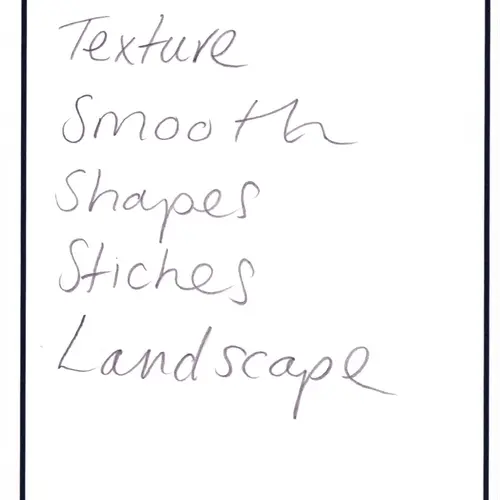 Texture
Smooth
Shapes
Stiches
Landscape